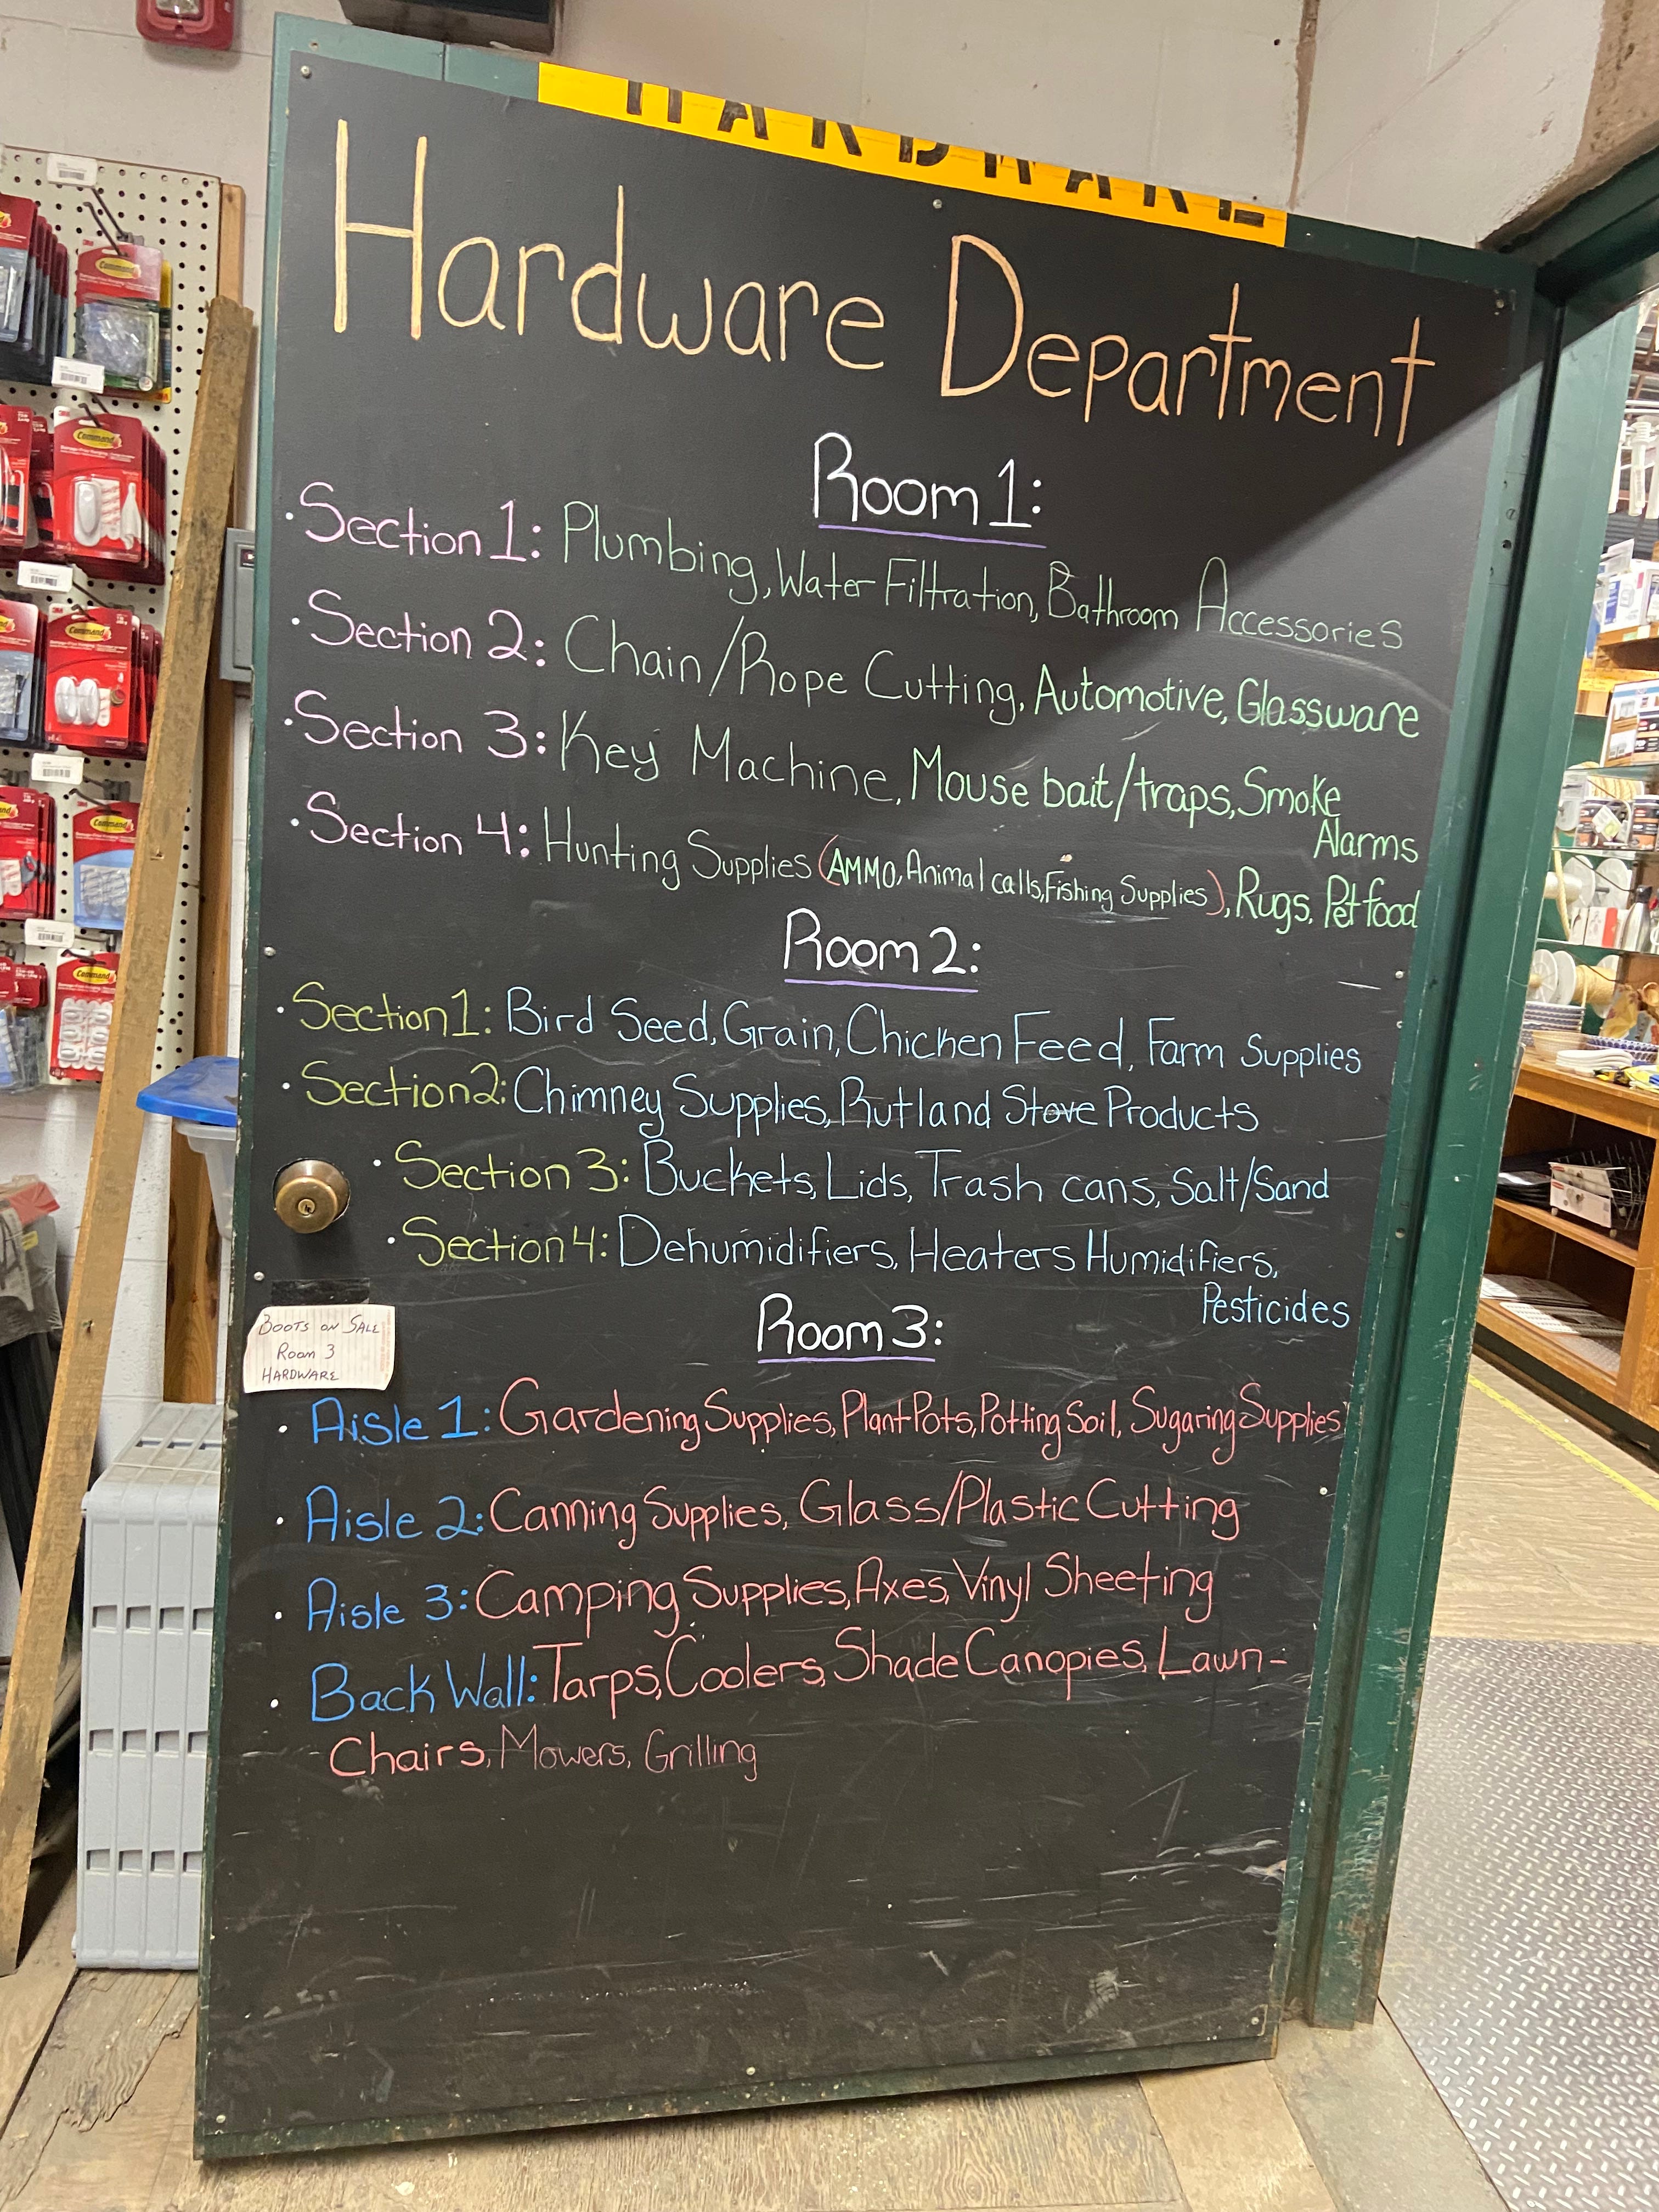 HARDWARE
Hardware Department
Room 1:
· Section 1: Plumbing, Water Filtration, Bathroom Accessories
· Section 2: Chain/Rope Cutting, Automotive, Glassware
· Section 3: Key Machine, Mouse bait/traps, Smoke
Alarms
· Section 4: Hunting Supplies (AMMO, Animal calls, Fishing Supplies), Rugs, Pet food
Room 2:
· Section 1: Bird Seed, Grain, Chicken Feed, Farm Supplies
· Section 2: Chimney Supplies, Rutland Stove Products
· Section 3: Buckets, Lids, Trash cans, Salt/Sand
· Section 4: Dehumidifiers, Heaters Humidifiers,
Pesticides
Room 3:
BOOTS ON SALE
Room 3
HARDWARE
· Aisle 1: Gardening Supplies, Plant Pots, Potting Soil, Sugaring Supplies
· Aisle 2: Canning Supplies, Glass/Plastic Cutting
· Aisle 3: Camping Supplies, Axes, Vinyl Sheeting
· Back Wall: Tarps, Coolers, Shade Canopies, Lawn-
- Chairs, Mowers, Grilling
Command
Command
Command
Command
Command